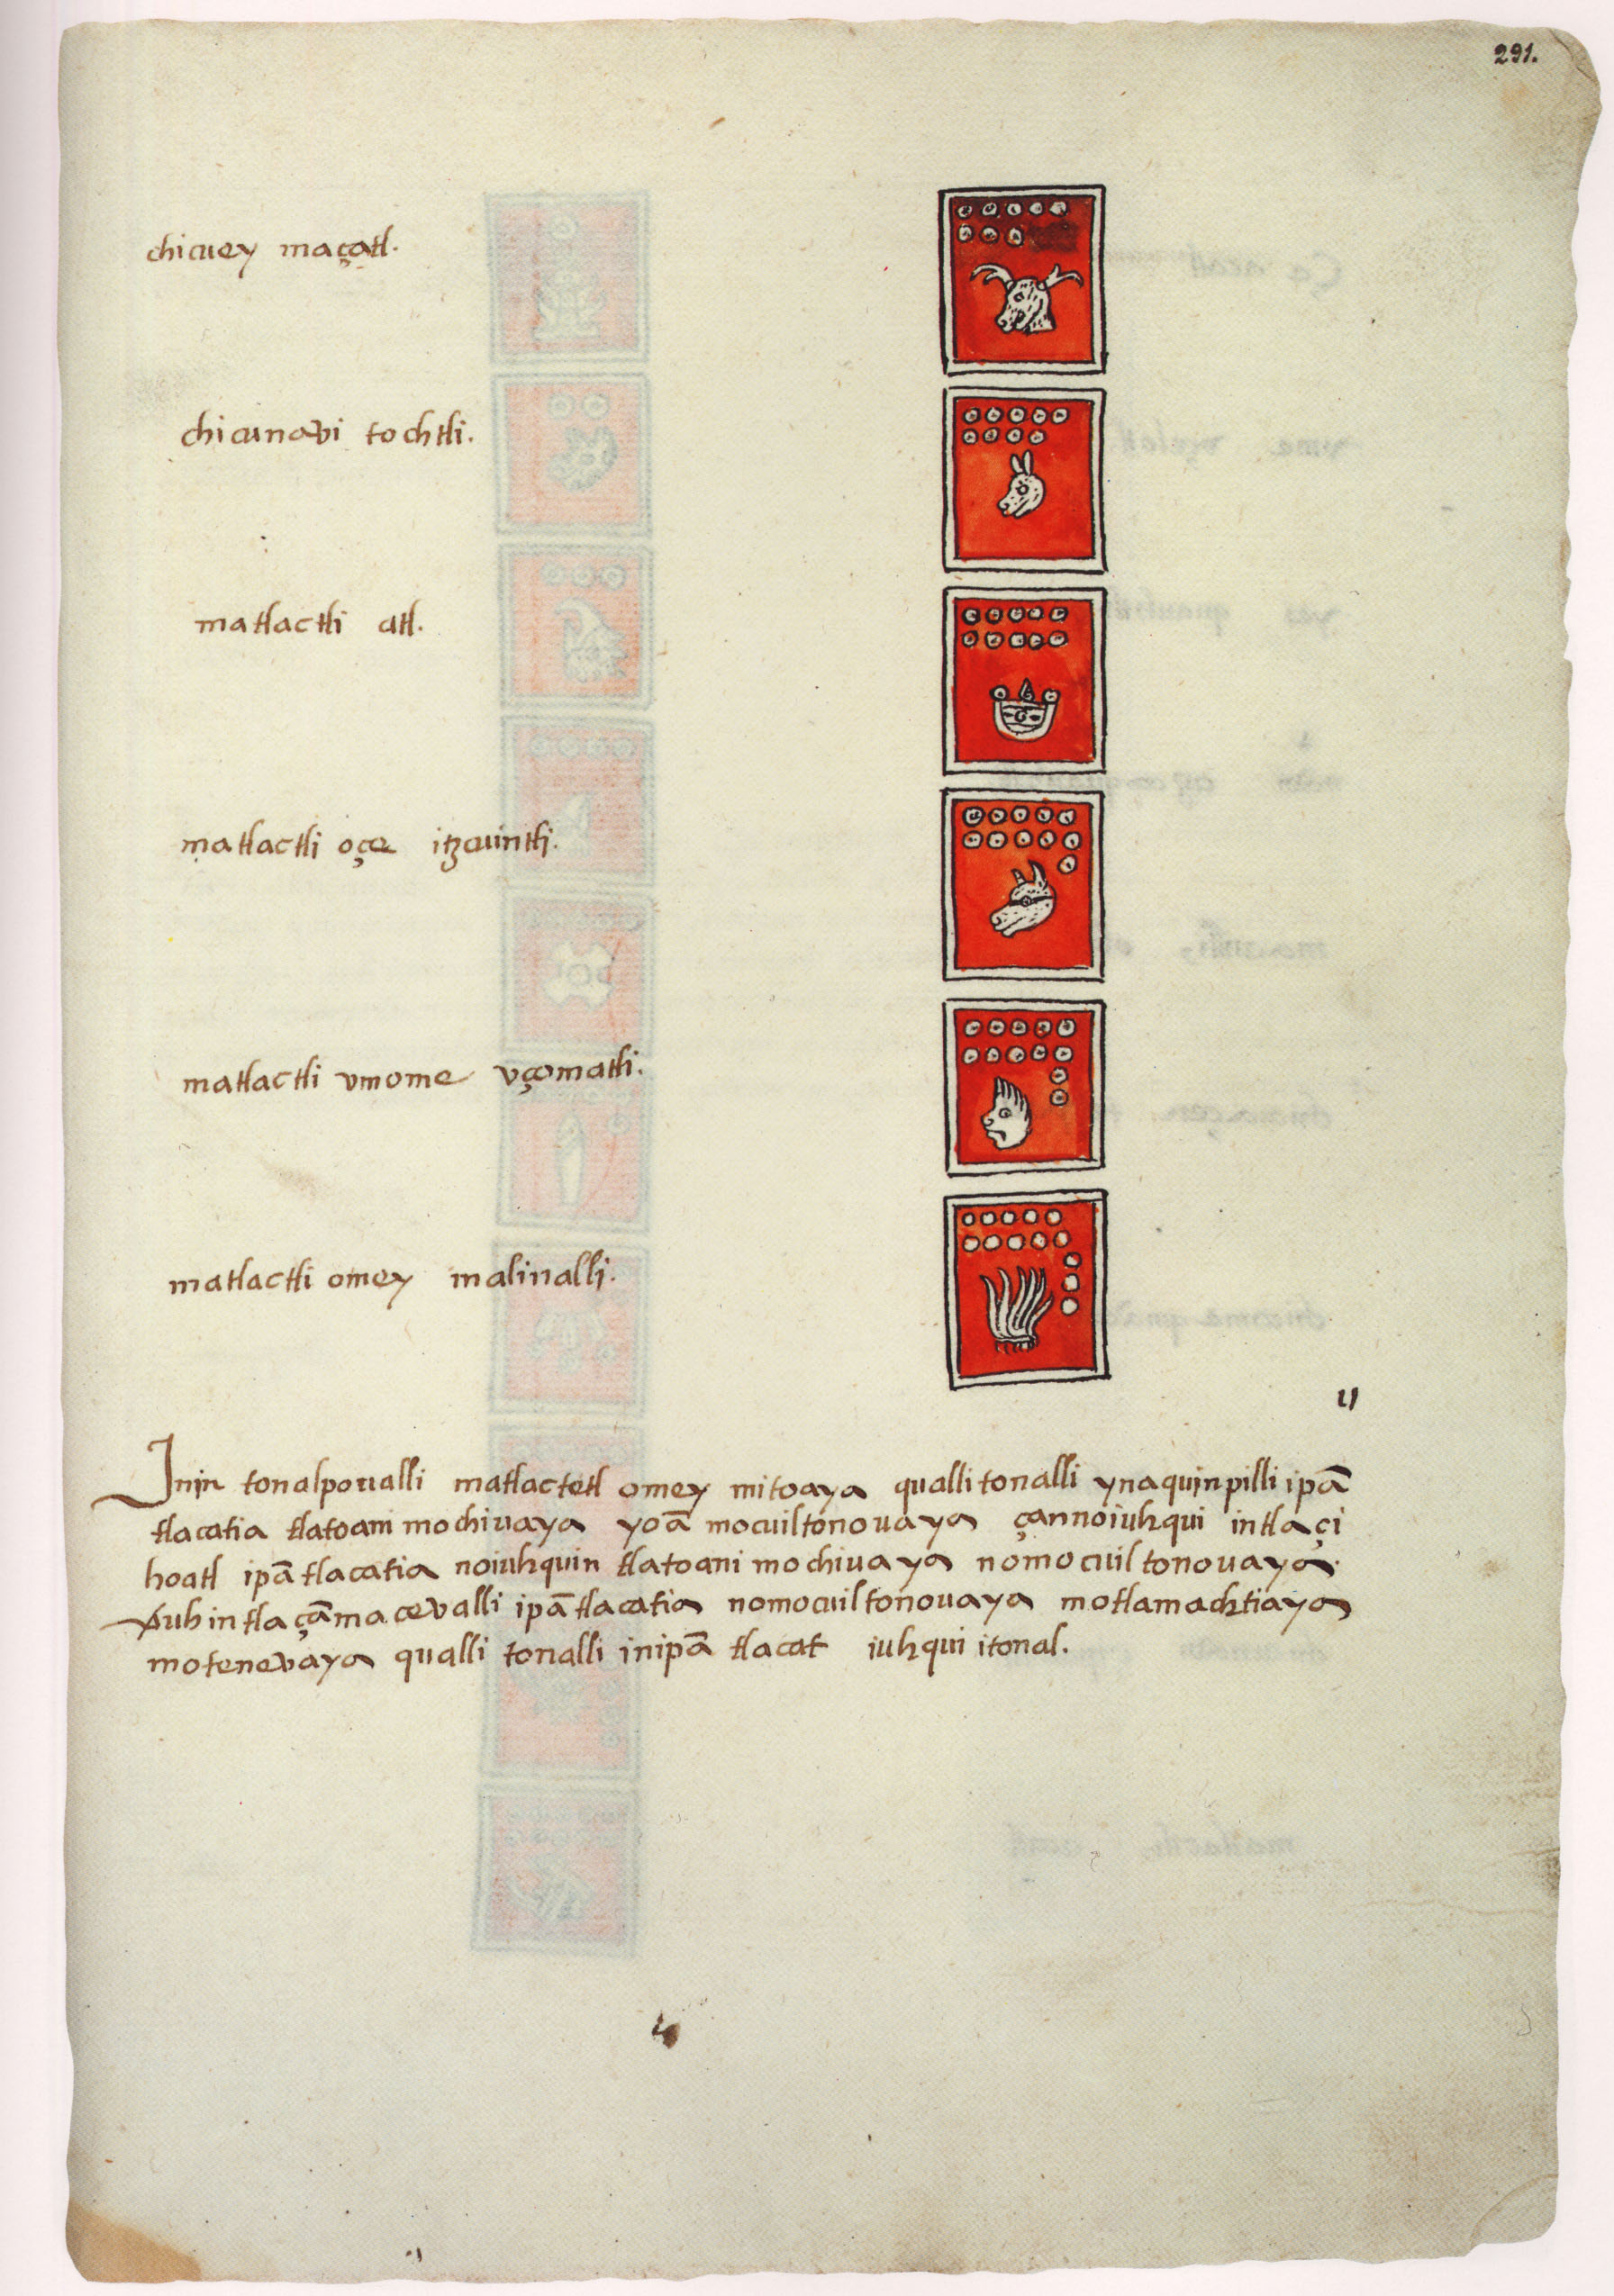 291.
chicuey maçatl.
chicunavi tochtli.
matlactli atl.
matlactli oçe itzcuintli.
matlactli vmome vçomatli.
matlactli omey malinalli.
Inin tonalpoualli matlactetl omey mitoaya qualli tonalli ynaquin pilli ipā
tlacatia tlatoani mochiuaya yoā mocuiltonouaya çannoiuhqui intla çi
hoatl ipā tlacatia noiuhquin tlatoani mochiuaya nomocuiltonouaya.
Auh intla çā maceualli ipā tlacatia nomocuiltonouaya motlamachtiaya
motenevaya qualli tonalli inipā tlacat iuhqui itonal.